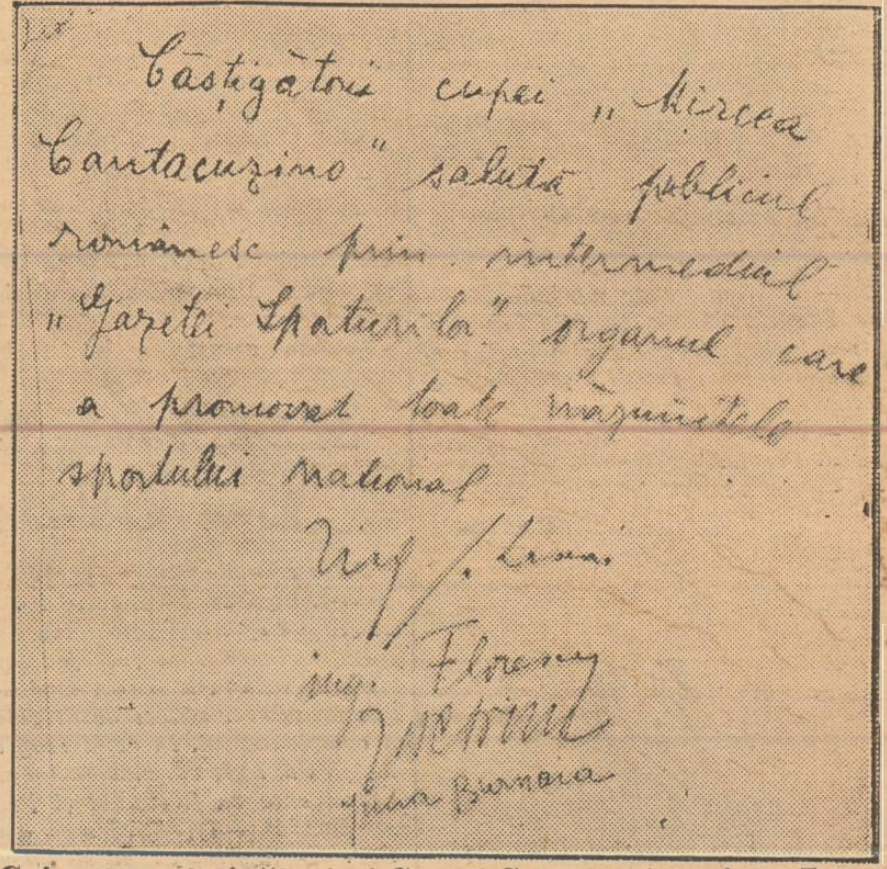 Câștigătorii cupei „Mircea
Cantacuzino" salută publicul
românesc prin intermediul
„Gazetei Sporturilor" organul care
a promovat toate năzuințele
sportului național
ing. Florescu
Burnaia